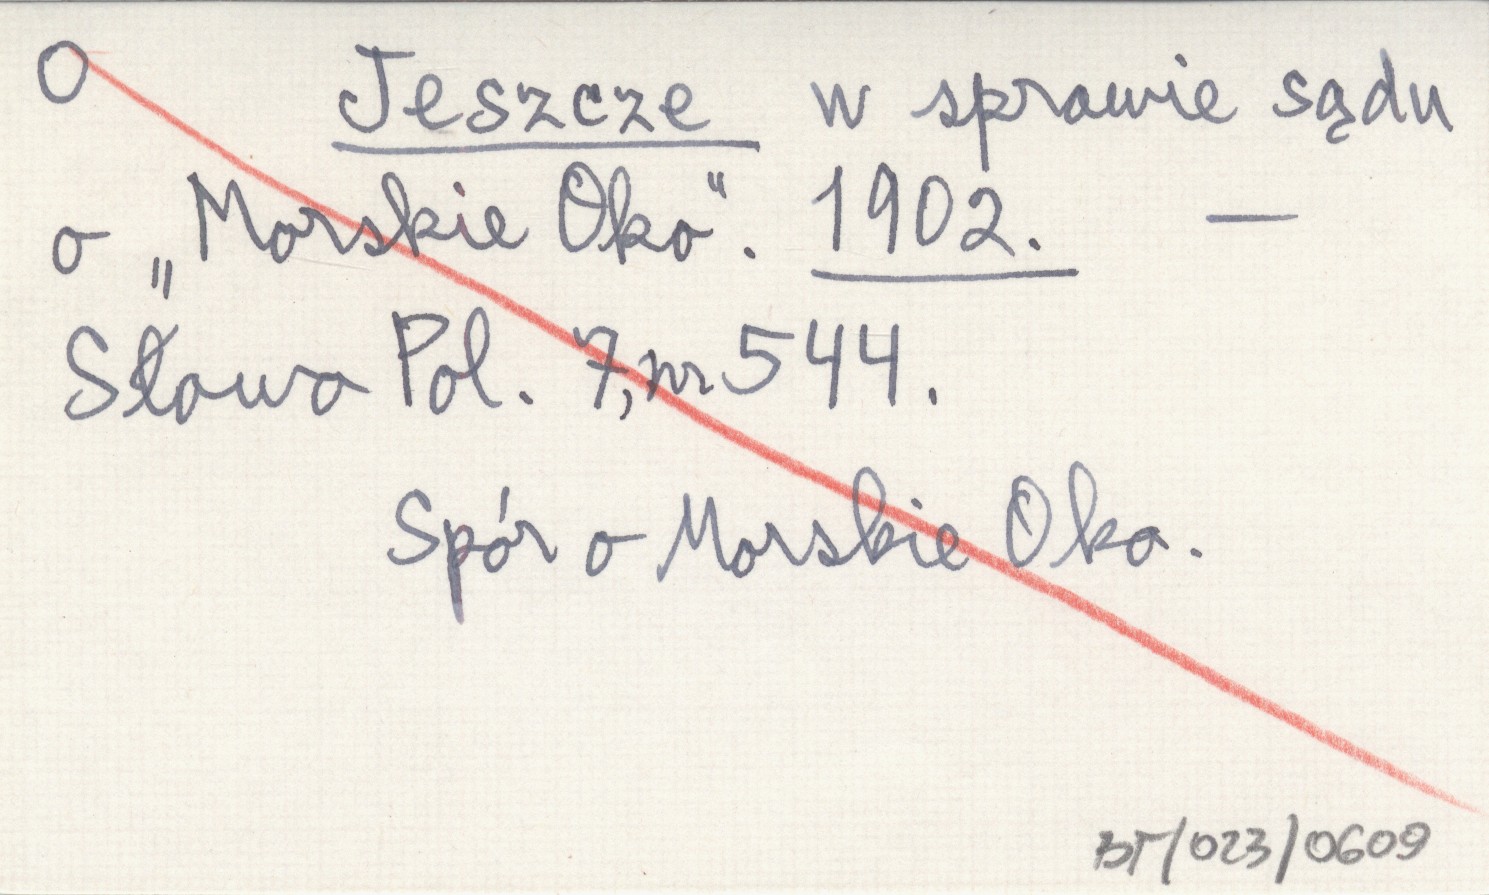 O Jeszcze w sprawie sądu
o „Morskie Oko". 1902. —
Słowo Pol. 7, nr 544.
Spór o Morskie Oko.
BT/023/0609